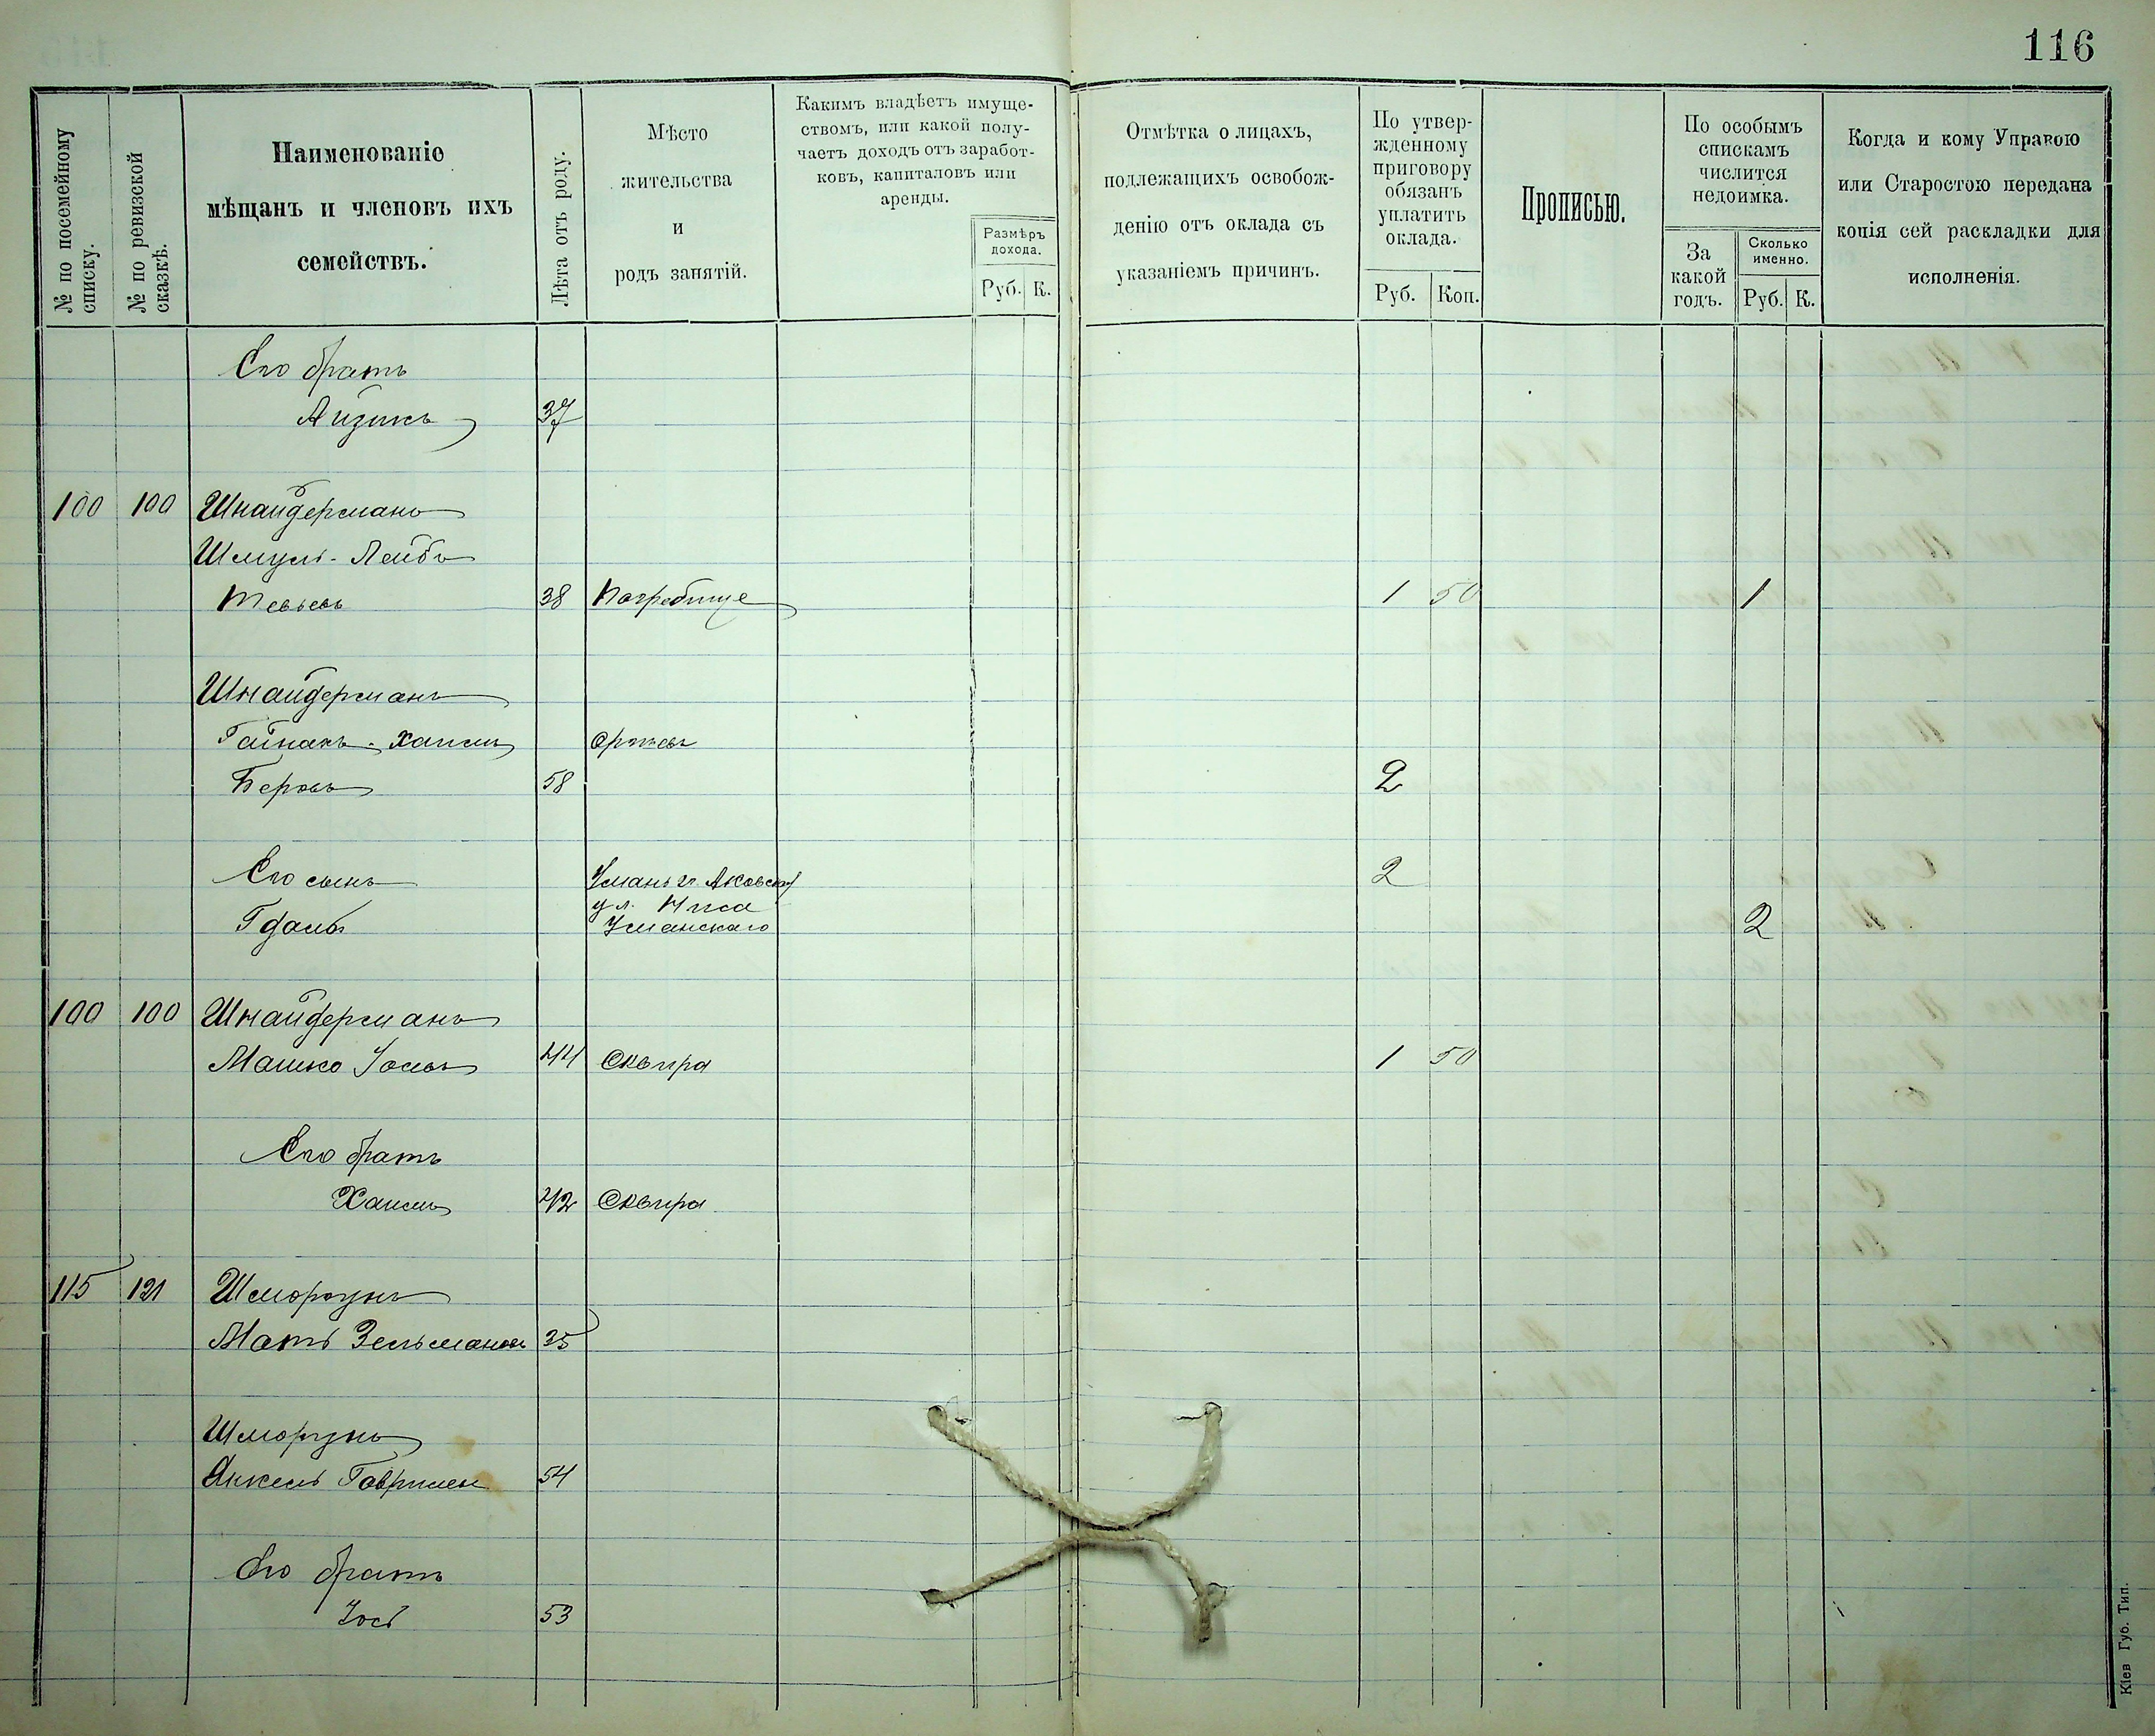 116
№ по посемейному
списку.
№ по ревизской
сказкѣ.
Наименованіе
мѣщанъ и членовъ ихъ
семействъ.
Лѣта отъ роду.
Мѣсто
жительства
и
родъ занятій.
Какимъ владѣетъ имуще-
ствомъ, или какой полу-
чаетъ доходъ отъ заработ-
ковъ, капиталовъ или
аренды.
Размѣръ
дохода.
Руб. К.
Отмѣтка о лицахъ,
подлежащихъ освобож-
денію отъ оклада съ
указаніемъ причинъ.
По утвер-
жденному
приговору
обязанъ
уплатить
оклада.
Руб. Коп.
Прописью.
По особымъ
спискамъ
числится
недоимка.
За
какой
годъ.
Сколько
именно.
Руб. К.
Когда и кому Управою
или Старостою передана
копія сей раскладки для
исполненія.
Его братъ
Айзикъ 37
100 100 Шнайдерманъ
Шмуль-Лейбъ
Тевьевъ 38 Погребище 1 50 1
Шнайдерманъ
Хаимъ
Беровъ 58 2
Его сынъ Умань 2
ул.
Гдаль Уманскаго 2
100 100 Шнайдерманъ
Мошко 44 Сквира 1 50
Его братъ
Хаимъ 42 Сквира
115 121 Шморгунъ
Мать Зельмановъ 35
Шморгунъ
Янкель Гаврилев 54
Его братъ
Іось 53
Кіев Губ. Тип.